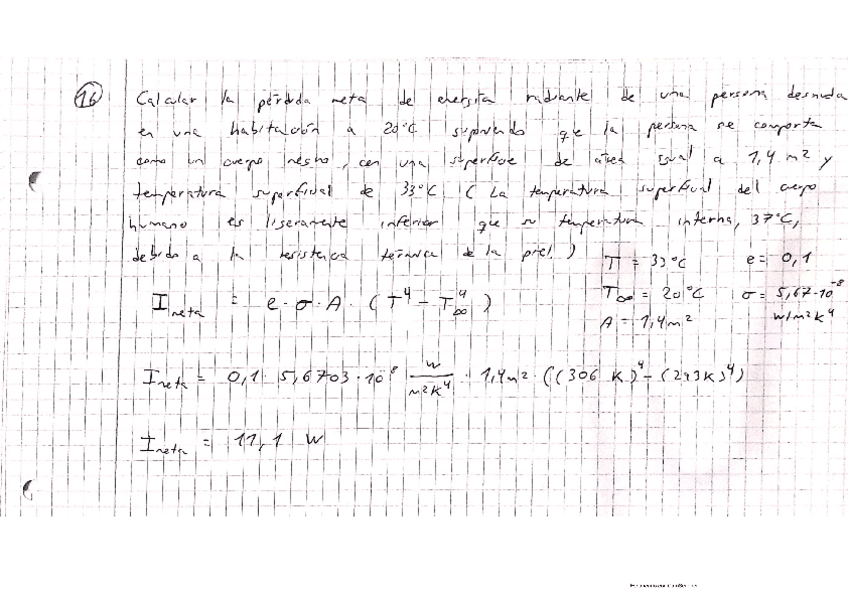 16 Calcular la pérdida neta de energía radiante de una persona desnuda
en una habitación a 20°C suponiendo que la persona se comporta
como un cuerpo negro, con una superficie de área igual a 1,4 m² y
temperatura superficial de 33°C. (La temperatura superficial del cuerpo
humano es ligeramente inferior que su temperatura interna, 37°C,
debido a la resistencia térmica de la piel.)
T = 33°C e = 0,1
T∞ = 20°C σ = 5,67·10⁻⁸
A = 1,4 m² W/m²K⁴
I neta = e · σ · A · (T⁴ - T∞⁴)
I neta = 0,1 · 5,6703 · 10⁻⁸ W/m²K⁴ · 1,4 m² · ((306 K)⁴ - (293K)⁴)
I neta = 11,1 W